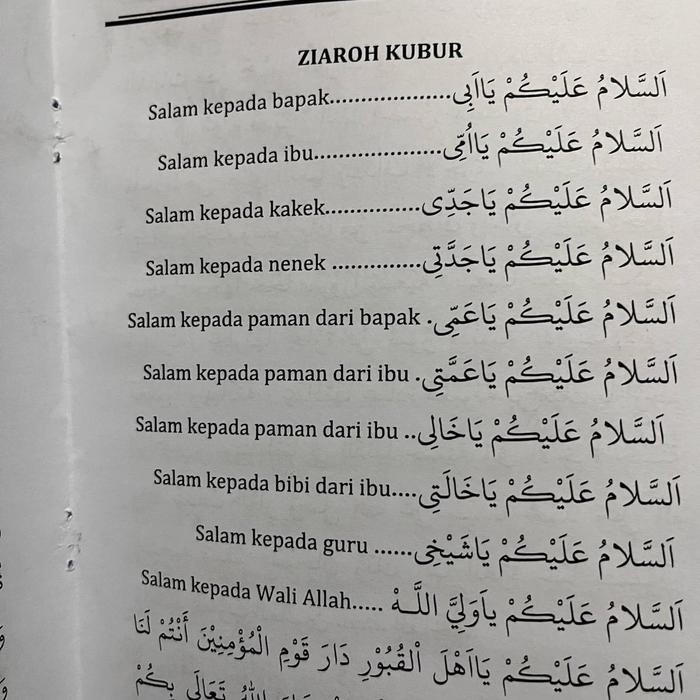 ZIAROH KUBUR
Salam kepada bapak....................اَلسَّلَامُ عَلَيْكُمْ يَااَبِى
Salam kepada ibu.....................اَلسَّلَامُ عَلَيْكُمْ يَااُمِّى
Salam kepada kakek................اَلسَّلَامُ عَلَيْكُمْ يَاجَدِّى
Salam kepada nenek ...............اَلسَّلَامُ عَلَيْكُمْ يَاجَدَّتِي
Salam kepada paman dari bapak .اَلسَّلَامُ عَلَيْكُمْ يَاعَمِّى
Salam kepada paman dari ibu .اَلسَّلَامُ عَلَيْكُمْ يَاعَمَّتِي
Salam kepada paman dari ibu ..اَلسَّلَامُ عَلَيْكُمْ يَاخَالِى
Salam kepada bibi dari ibu....اَلسَّلَامُ عَلَيْكُمْ يَاخَالَتِى
Salam kepada guru ......اَلسَّلَامُ عَلَيْكُمْ يَاشَيْخِى
Salam kepada Wali Allah.....اَلسَّلَامُ عَلَيْكُمْ يَاوَلِيَّ اللَّـهْ
اَلسَّلَامُ عَلَيْكُمْ يَااَهْلَ اْلقُبُوْرِ دَارَ قَوْمِ الْمُؤْمِنِيْنَ أَنْتُمْ لَنَا
اللهُ تَعَالَى بِكُمْ